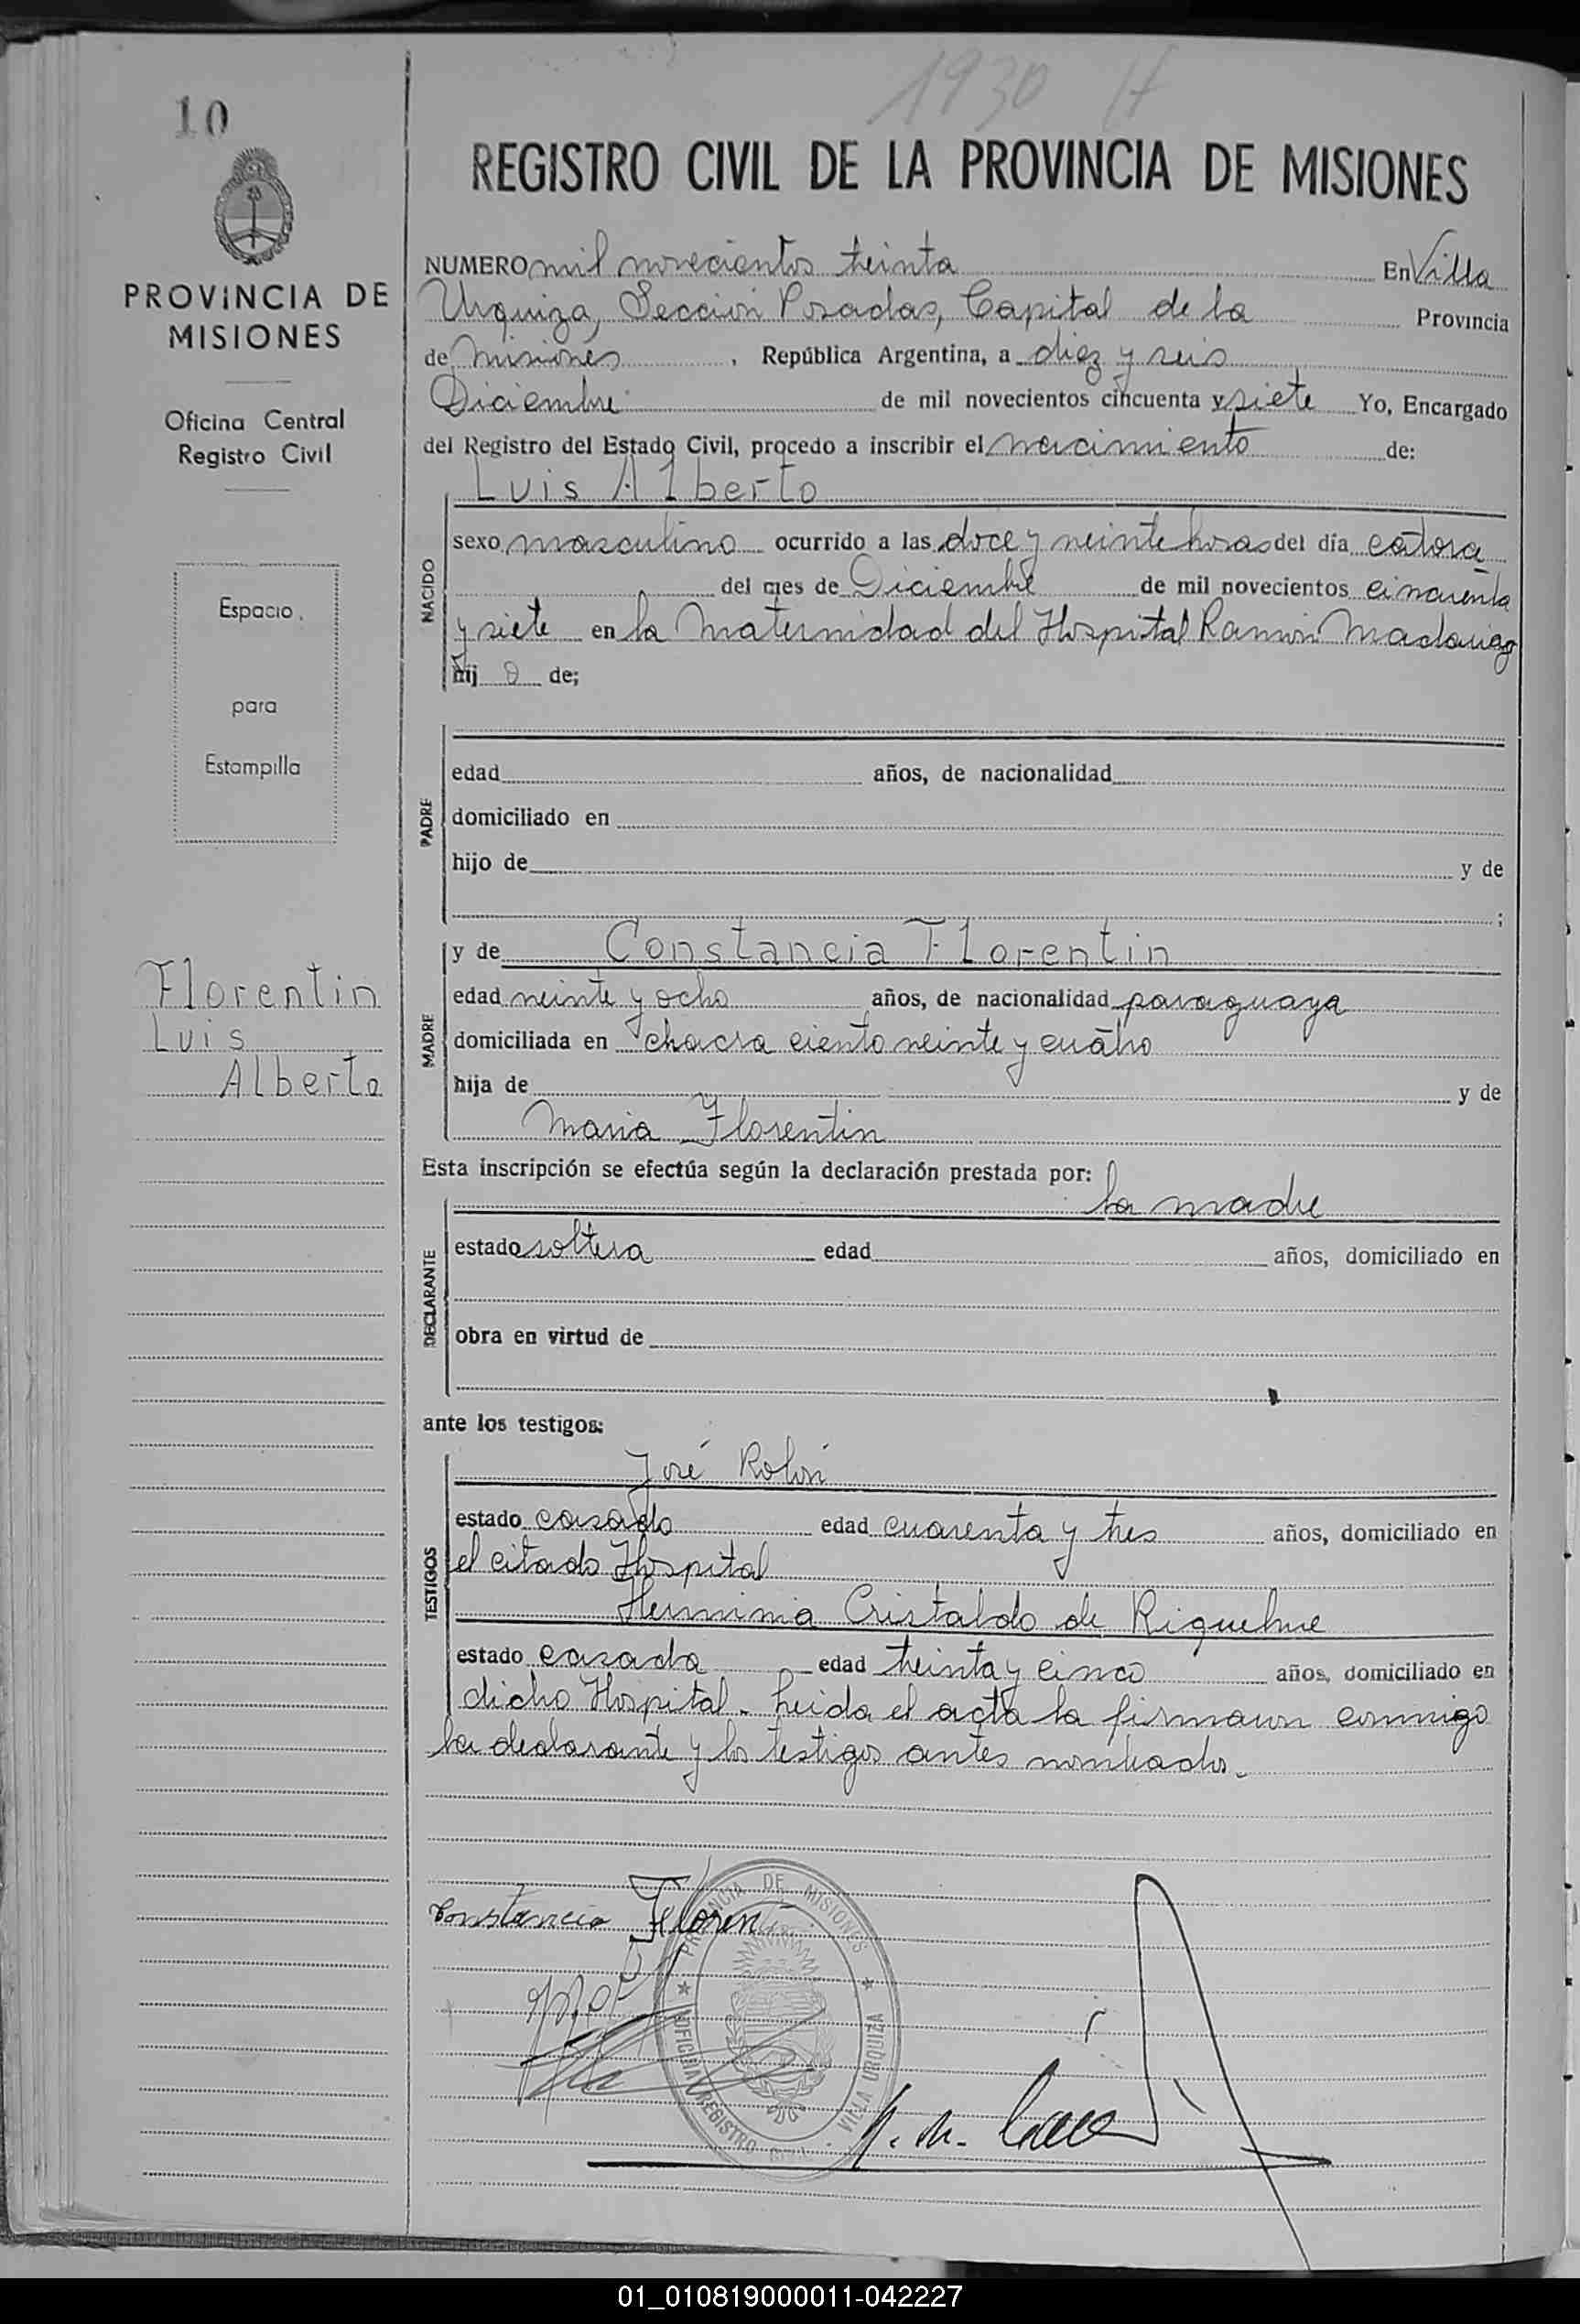 1930 H
10
REGISTRO CIVIL DE LA PROVINCIA DE MISIONES
PROVINCIA DE
MISIONES
Oficina Central
Registro Civil
Espacio
para
Estampilla
Florentin
Luis
Alberto
NUMERO mil novecientos treinta En Villa
Urquiza, Sección Posadas, Capital de la Provincia
de Misiones, República Argentina, a diez y seis
Diciembre de mil novecientos cincuenta y siete Yo, Encargado
del Registro del Estado Civil, procedo a inscribir el nacimiento de:
Luis Alberto
NACIDO
sexo masculino ocurrido a las doce y veinte horas del día catorce
del mes de Diciembre de mil novecientos cincuenta
y siete en la Maternidad del Hospital Ramón Madariag
hij o de;
PADRE
edad años, de nacionalidad
domiciliado en
hijo de y de
;
MADRE
y de Constancia Florentin
edad veinte y ocho años, de nacionalidad paraguaya
domiciliada en chacra ciento veinte y cuatro
hija de y de
Maria Florentin
Esta inscripción se efectúa según la declaración prestada por:
la madre
DECLARANTE
estado soltera edad años, domiciliado en
obra en virtud de
ante los testigos:
José Rolón
TESTIGOS
estado casado edad cuarenta y tres años, domiciliado en
el citado Hospital
Herminia Cristaldo de Riquelme
estado casada edad treinta y cinco años, domiciliado en
dicho Hospital. Leida el acta la firmaron conmigo
la declarante y los testigos antes nombrados.
Constancia Floren
PROVINCIA DE MISIONES
OFICINA REGISTRO CIVIL VILLA URQUIZA
01_010819000011-042227